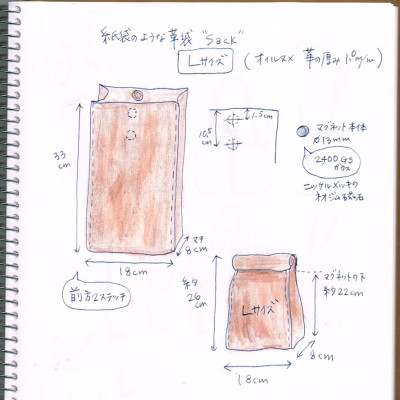 紙袋のような革袋 "Sack"
Lサイズ
(オイルヌメ 革の厚み 1.0m/m)
33
cm
10.5
cm
1.5cm
マグネット本体
Ø13mm
2400GS
ガウス
ニッケルメッキの
ネオジム磁石
マチ
8cm
18cm
前方2ステッチ
約
26
cm
Lサイズ
マグネットの下
約22cm
8cm
18cm